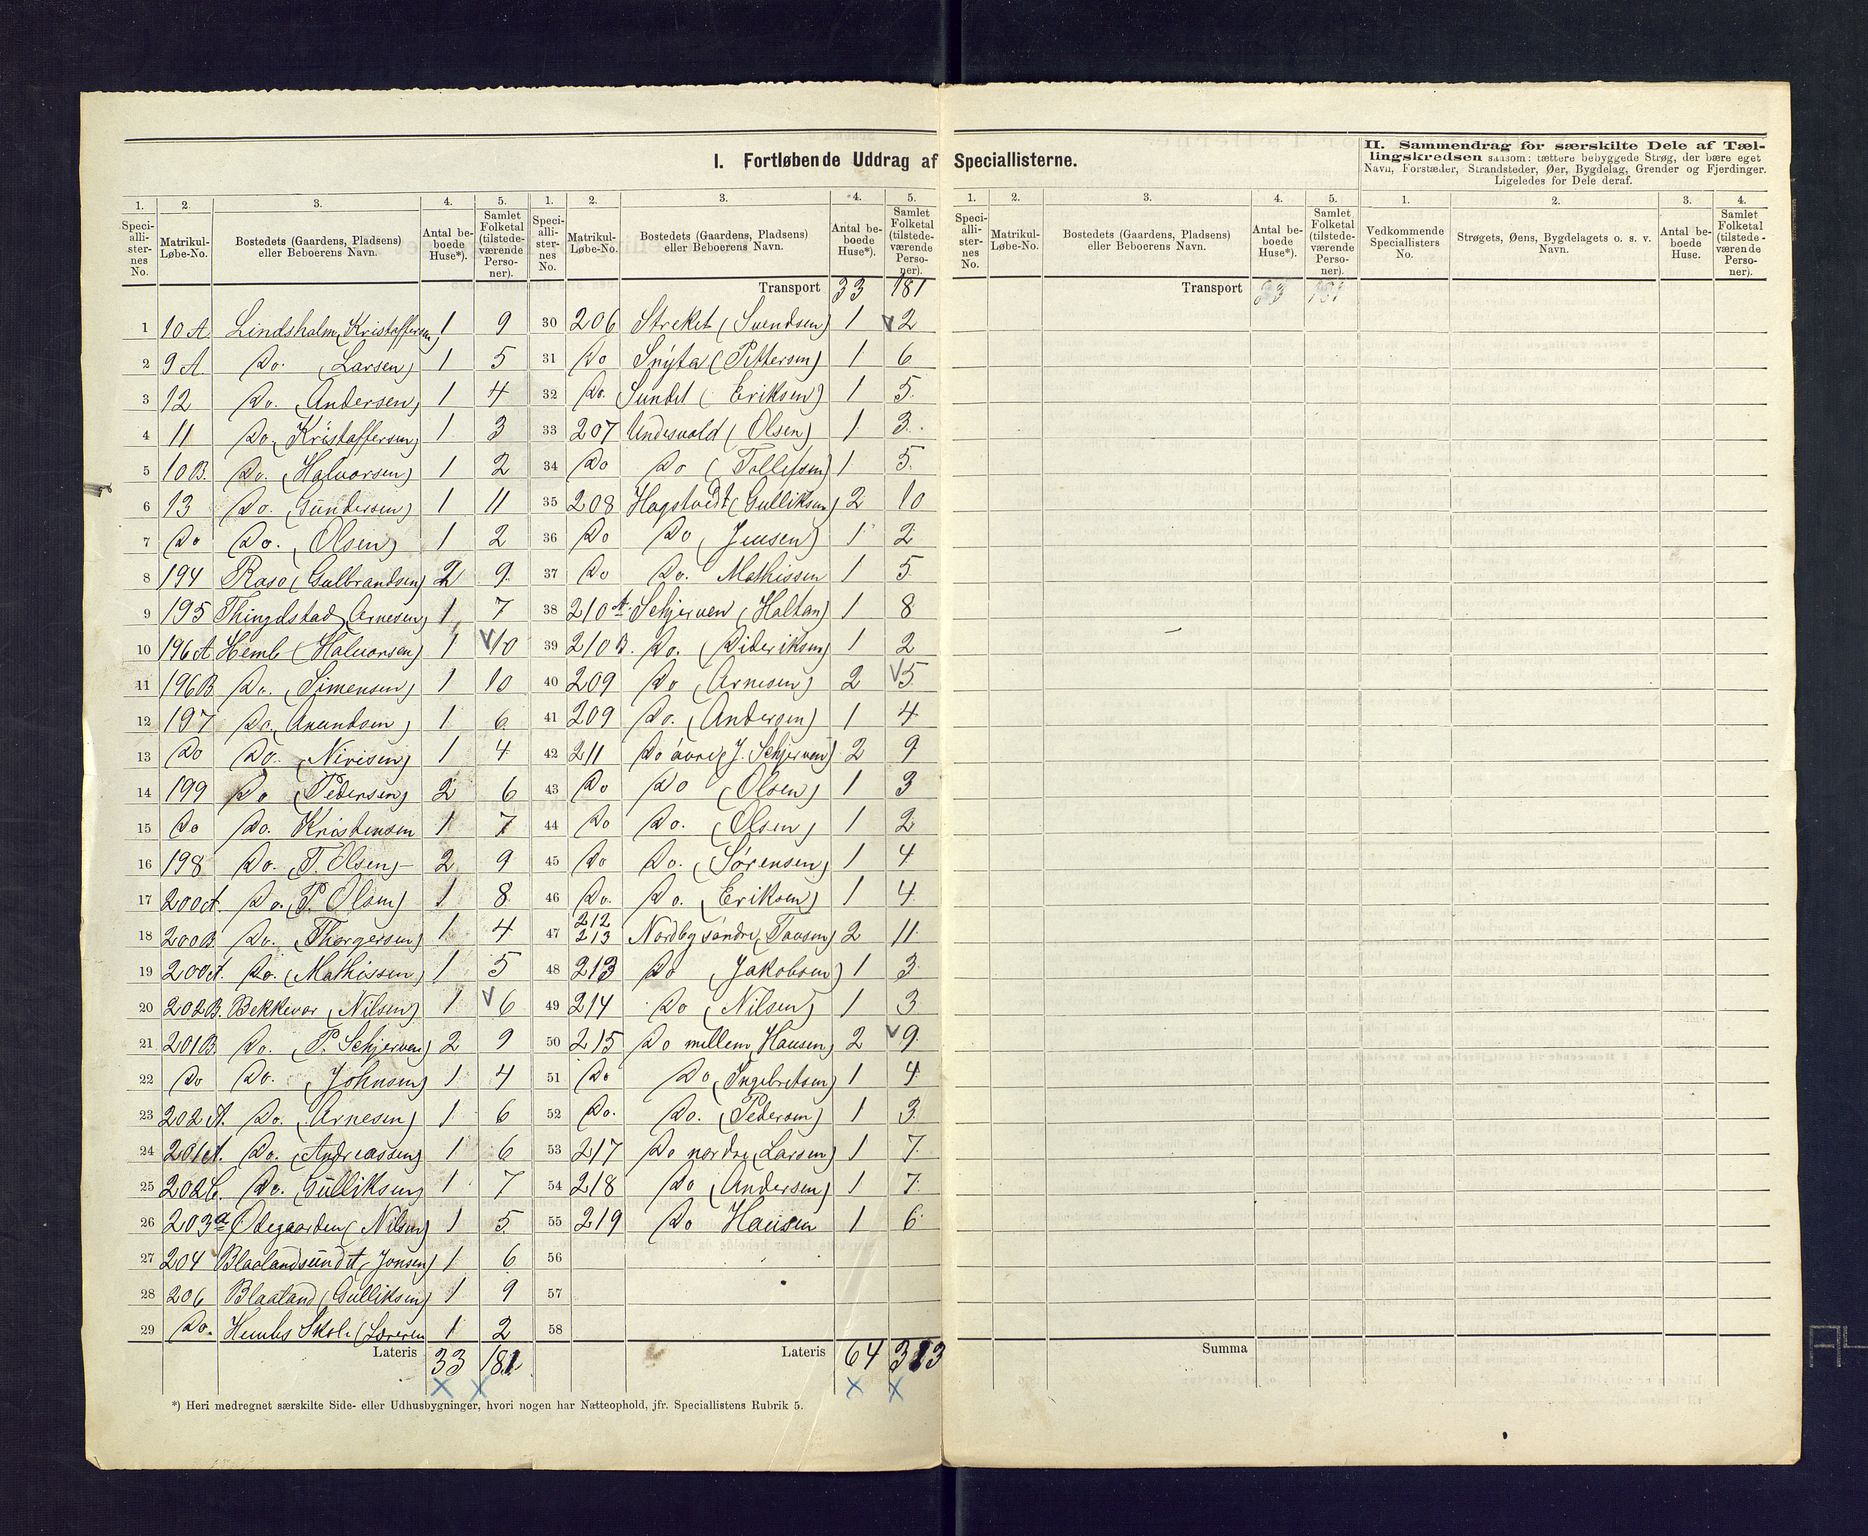 I. Fortløbende Uddrag af Speciallisterne.
II. Sammendrag for særskilte Dele af Tæl-
lingskredsen saasom: tættere bebyggede Strøg, der bære eget
Navn, Forstæder, Strandsteder, Øer, Bygdelag, Grender og Fjerdinger.
Ligeledes for Dele deraf.
1. 2. 3. 4. 5. 1. 2. 3. 4. 5. 1. 2. 3. 4. 5. 1. 2. 3. 4.
Speci-alli-ster-nes No. Matrikul-Løbe-No. Bostedets (Gaardens, Pladsens) eller Beboerens Navn. Antal be-boede Huse*). Samlet Folketal (tilstede-værende Perso-ner).
Speci-alli-ster-nes No. Matrikul-Løbe-No. Bostedets (Gaardens, Pladsens) eller Beboerens Navn. Antal be-boede Huse*). Samlet Folketal (tilstede-værende Perso-ner).
Speci-alli-ster-nes No. Matrikul-Løbe-No. Bostedets (Gaardens, Pladsens) eller Beboerens Navn. Antal be-boede Huse*). Samlet Folketal (tilstede-værende Perso-ner).
Vedkommende Speciallisters No. Strøgets, Øens, Bygdelagets o. s. v. Navn. Antal be-boede Huse. Samlet Folketal (tilstede-værende Perso-ner).
1 10A Lindsholm (Kristoffersen) 1 9
2 9A Do. (Larsen) 1 5
3 12 Do. (Andersen) 1 4
4 11 Do. (Kristoffersen) 1 3
5 10B. Do. (Halvorsen) 1 2
6 13 Do. (Gundersen) 1 11
7 Do Do. (Olsen) 1 2
8 194 Raso (Gulbrandsen) 2 9
9 195 Thingulstad (Arnesen) 1 7
10 196A Hemb (Halvorsen) 1 10
11 196B Do. (Simensen) 1 10
12 197 Do. (Anundsen) 1 6
13 Do Do. (Nirisen) 1 4
14 199 Do (Pedersen) 2 6
15 Do Do. Kristensen 1 7
16 198 Do. (T. Olsen) 2 9
17 200A. Do. (P. Olsen) 1 8
18 200B. Do. (Thorgersen) 1 4
19 200A. Do. (Mathissen) 1 5
20 202B. Bekkevar (Nilsen) 1 6
21 201B. Do. (P. Schjerven) 2 9
22 Do Do. (Johnsen) 1 4
23 202A. Do. (Arnesen) 1 6
24 201A. Do. (Andreassen) 1 6
25 202C. Do. (Gulliksen) 1 7
26 203a Ødegaarden (Nilsen) 1 5
27 204 Blaalandsundt (Jonsen) 1 6
28 206 Blaaland (Gulliksen) 1 9
29 Do. Hembs Skole (Læreren 1 2
Lateris 33 181
Transport 33 181
30 206 Streket (Svendsen) 1 2
31 Do Snyta (Pettersen) 1 6
32 Do. Sundet (Eriksen) 1 5
33 207 Undesvald (Olsen) 1 3
34 Do Do (Tollefsen) 1 5
35 208 Hagstvedt (Gulliksen) 2 10
36 Do Do (Jensen) 1 2
37 Do Do. Mathissen 1 5
38 210A. Schjerven (Holtan) 1 8
39 210B. Do. (Dideriksen) 1 2
40 209 Do (Arnesen) 2 5
41 209 Do. (Andersen) 1 4
42 211 Do øvre (J. Schjerven) 2 9
43 Do Do (Olsen) 1 3
44 Do Do. (Olsen) 1 2
45 Do Do. (Sørensen) 1 4
46 Do. Do. (Eriksen) 1 4
47 212 213 Nordby søndre 2 11
48 213 Do (Jakobsen) 1 3
49 214 Do (Nilsen) 1 3
50 215 Do mellem (Hansen) 2 9
51 Do Do (Ingebretsen) 1 4
52 Do. Do. (Pedersen) 1 3
53 217 Do nordre (Larsen) 1 7
54 218 Do (Andersen) 1 7
55 219 Do Hansen 1 6
56
57
58
Lateris 64 313
Transport 33 181
Summa
*) Heri medregnet særskilte Side- eller Udhusbygninger, hvori nogen har Natteophold, jfr. Speciallistens Rubrik 5.